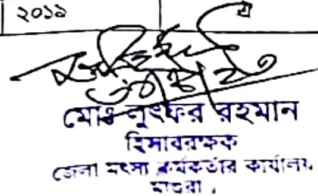 ২০১৯
মোঃ লুৎফর রহমান
হিসাবরক্ষক
জেলা মৎস্য কর্মকর্তার কার্যালয়
মাগুরা ।